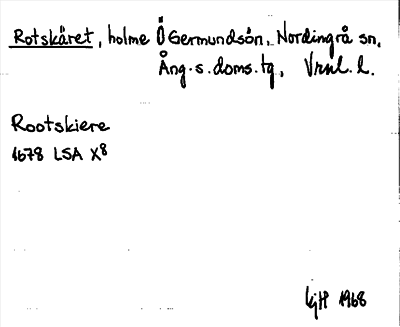 Rotskäret, holme Ö Germundsön, Nordingrå sn,
Ång. s. doms. tg, Vrnl. l.
Rootskiere
1678 LSA X8
KjH 1968